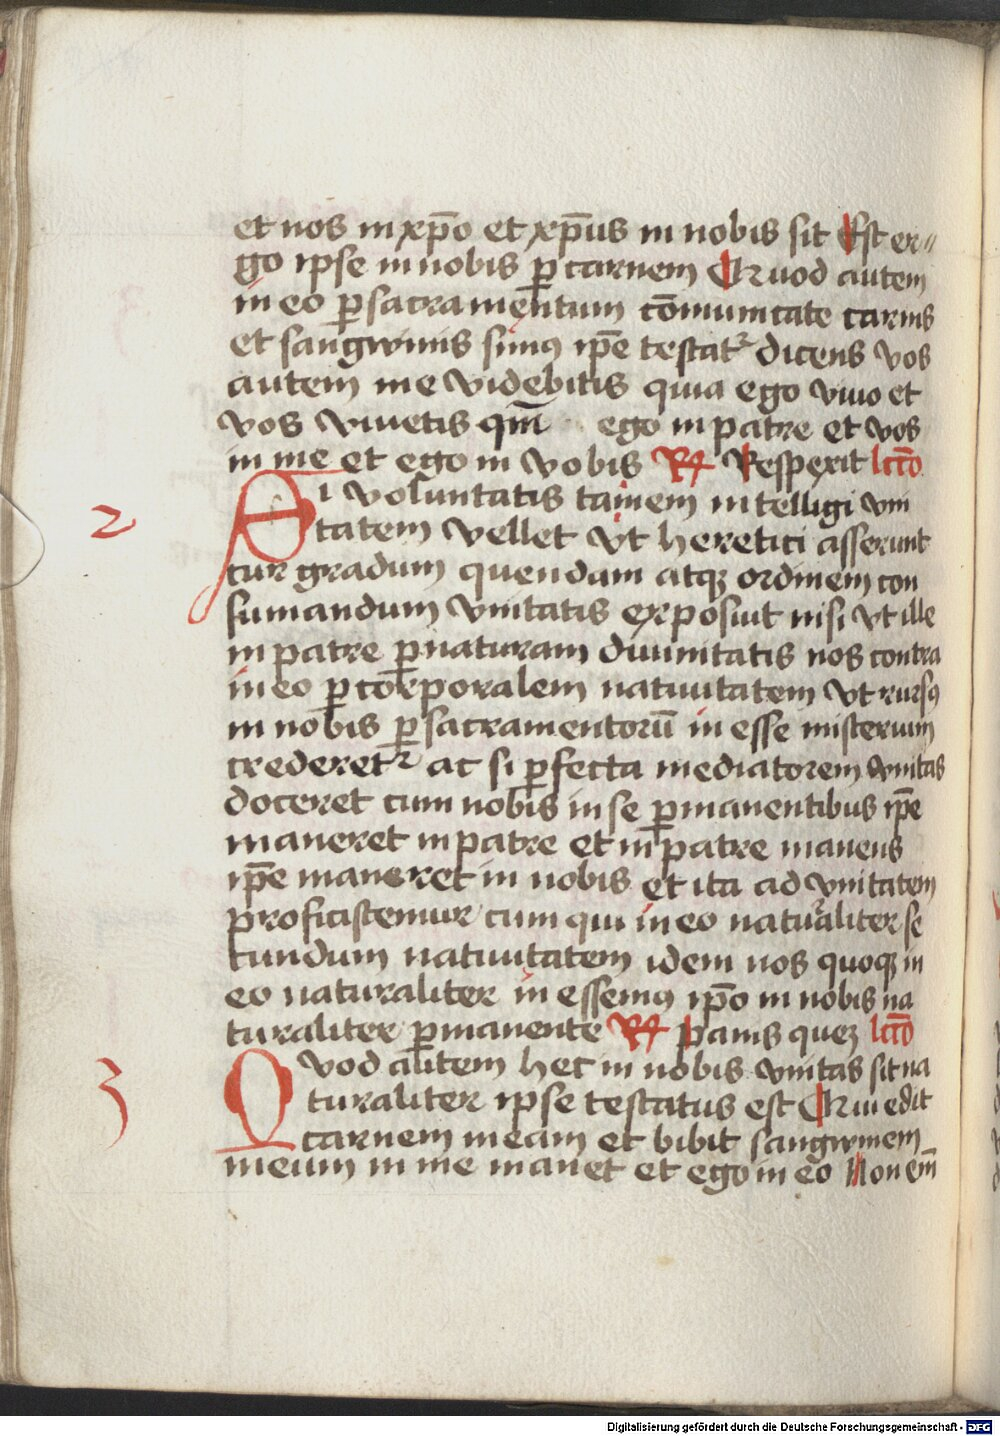 et nos in xp̄o et xp̄us in nobis sit Est er〃
go ipse in nobis ꝑ carnem Quod autem
in eo ꝑ sacramentum cōmunicate carnis
et sangwinis simꝰ ip̄e testat᷑ dicens vos
autem me videbitis quia ego viuo et
vos viuetis qm̄ ego in patre et vos
in me et ego in vobis R Respexit lcc̄o
2
Si voluntatis tamen intelligi vni
tatem vellet vt heretici asserunt
cur gradum quendam atqꝫ ordinem con
sumandum vnitatis exposuit nisi vt ille
in patre ꝑ naturam diuinitatis nos contra
in eo ꝑ corporalem natiuitatem vt rursꝰ
in nobis ꝑ sacramentorū in esse misterium
crederet᷑ ac si ꝑfecta mediatorem vnitas
doceret cum nobis in se ꝑmanentibus ip̄e
maneret in patre et in patre manens
ip̄e maneret in nobis et ita ad vnitatem
proficistemur cum qui in eo naturaliter se
cundum natiuitatem idem nos quoqꝫ in
eo naturaliter in essemꝰ ip̄o in nobis na
turaliter ꝑmanente R Panis queꝫ lcc̄o
3
Quod autem hec in nobis vnitas sit na
turaliter ipse testatus est Qui edit
carnem meam et bibit sangwinem
meum in me manet et ego in eo Non em̄
Digitalisierung gefördert durch die Deutsche Forschungsgemeinschaft - DFG